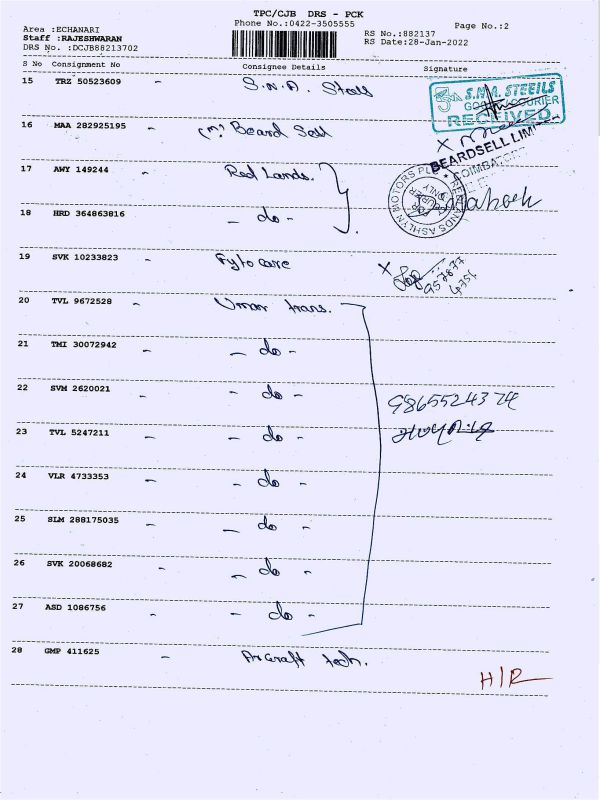 TPC/CJB DRS - PCK
Area :ECHANARI Phone No.:0422-3505555 Page No.:2
Staff :RAJESHWARAN RS No.:882137
DRS No. :DCJB88213702 RS Date:28-Jan-2022
S No Consignment No Consignee Details Signature
15 TRZ 50523609 - S.N.A. Steels
S.N.A. STEEILS
COURIER
RECEIVED
16 MAA 282925195 - (M) Beard Sell
X
BEARDSELL LIM
COIMBATORE
17 AWY 149244 - Red Lands.
REDLANDS ASHLYN MOTORS PLC
18 HRD 364863816 - do -
19 SVK 10233823 - Fytocare
X
957877
4751
20 TVL 9672528 - Umar trans.
21 TMI 30072942 - - do -
22 SVM 2620021 - - do -
9865524374
23 TVL 5247211 - - do -
24 VLR 4733353 - - do -
25 SLM 288175035 - - do -
26 SVK 20068682 - - do -
27 ASD 1086756 - - do -
28 GMP 411625 - Arcraft tech.
H/R